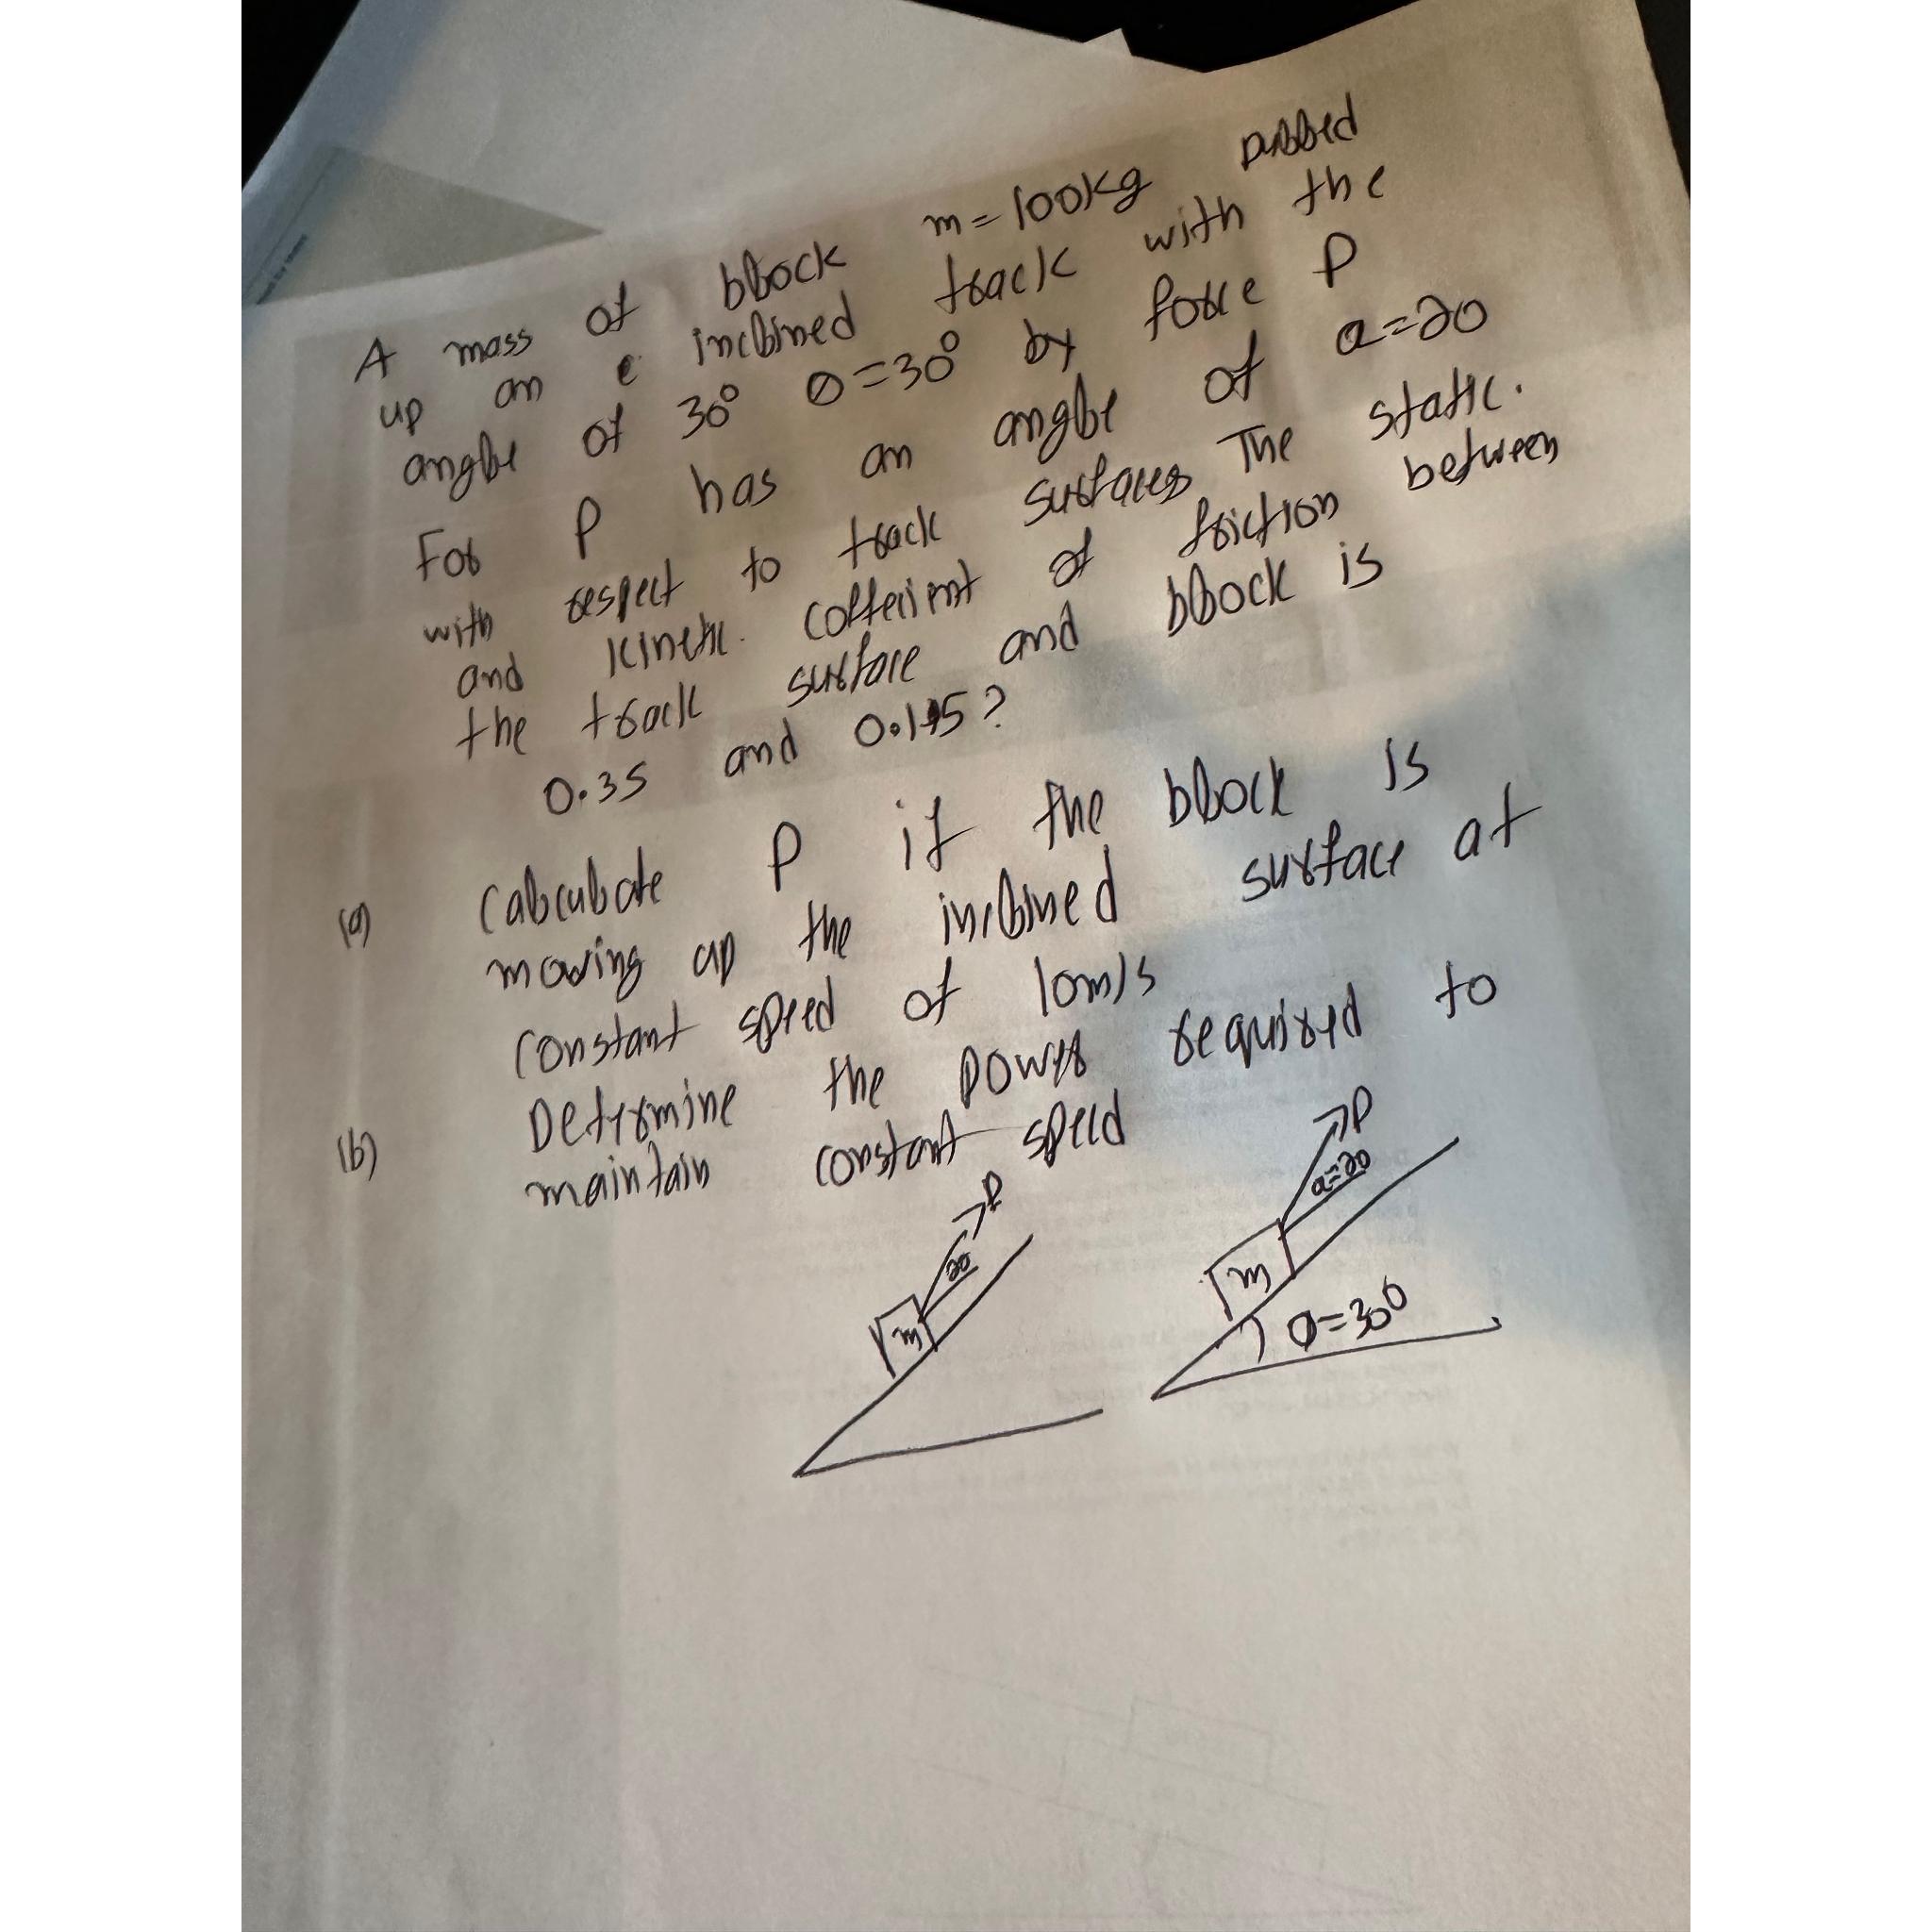 A mass of block m = 100kg pulled
up an e inclined track with the
angle of 30° θ=30° by force P
For P has an angle of a=20
with respect to track surfaces The static.
and kinetic. cofferient of friction between
the track surface and block is
0.35 and ?
(a) calculate P if the block is
moving up the inclined surface at
constant speed of 10m/s
(b) Determine the power required to
maintain constant speed
P
20
m
P
a=20
m
θ=30°